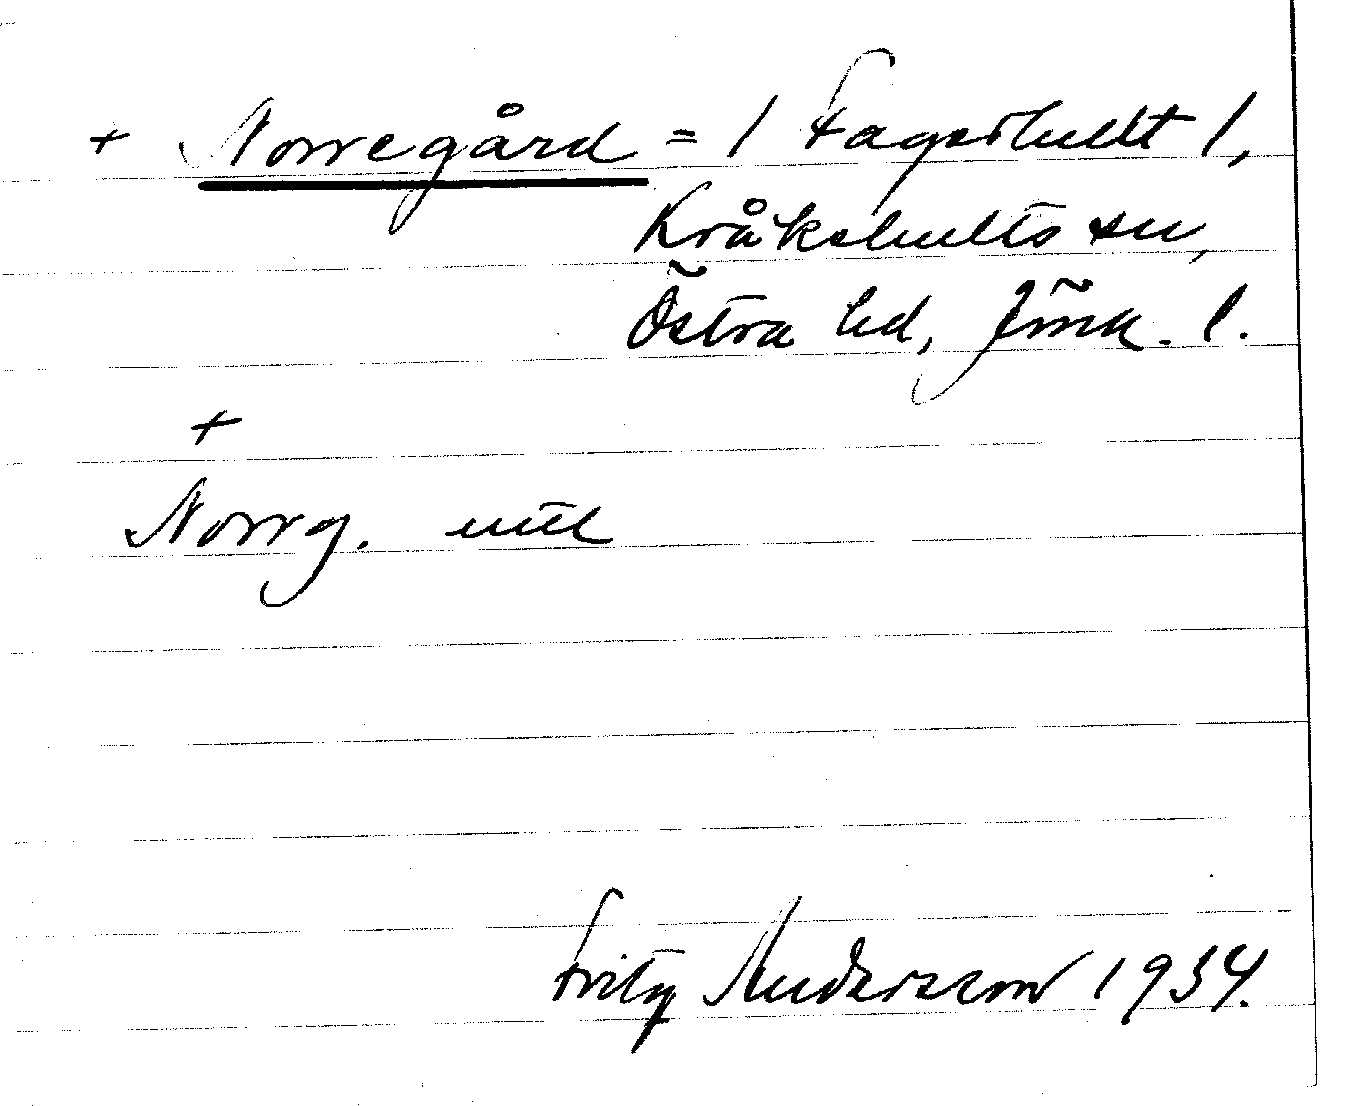 + Norregård = / Fagerhult /,
Kråkshults sn,
Östra hd, Jönk. l.
+
Norrg. mtl
Fritz Andersson 1934.